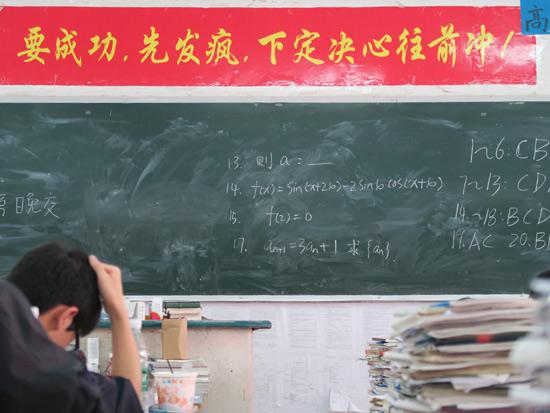 高
要成功，先发疯，下定决心往前冲！
晚交
13. 则 a = __
14. f(x)=sin(x+2φ)-2sinφcos(x+φ)
15. f(2)=0
17. aₙ₊₁=3aₙ+1 求{aₙ}
1~6: CB
7~13: CD
14~18: BCD
19. AC 20. B